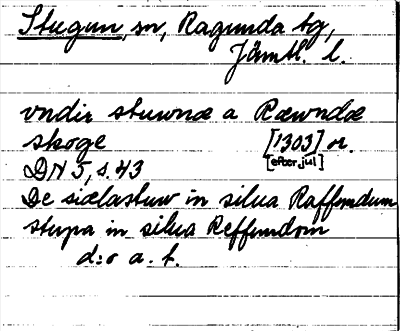 Stugun, sn, Ragunda tg,
Jämtl. l.
vndir stuwnæ a Ræwndæ
skoge [1303] or.
[efter jul]
DN 5, s. 43
De siælastuw in silua Raffondum
stupa in silua Reffundom
d:o a. f.